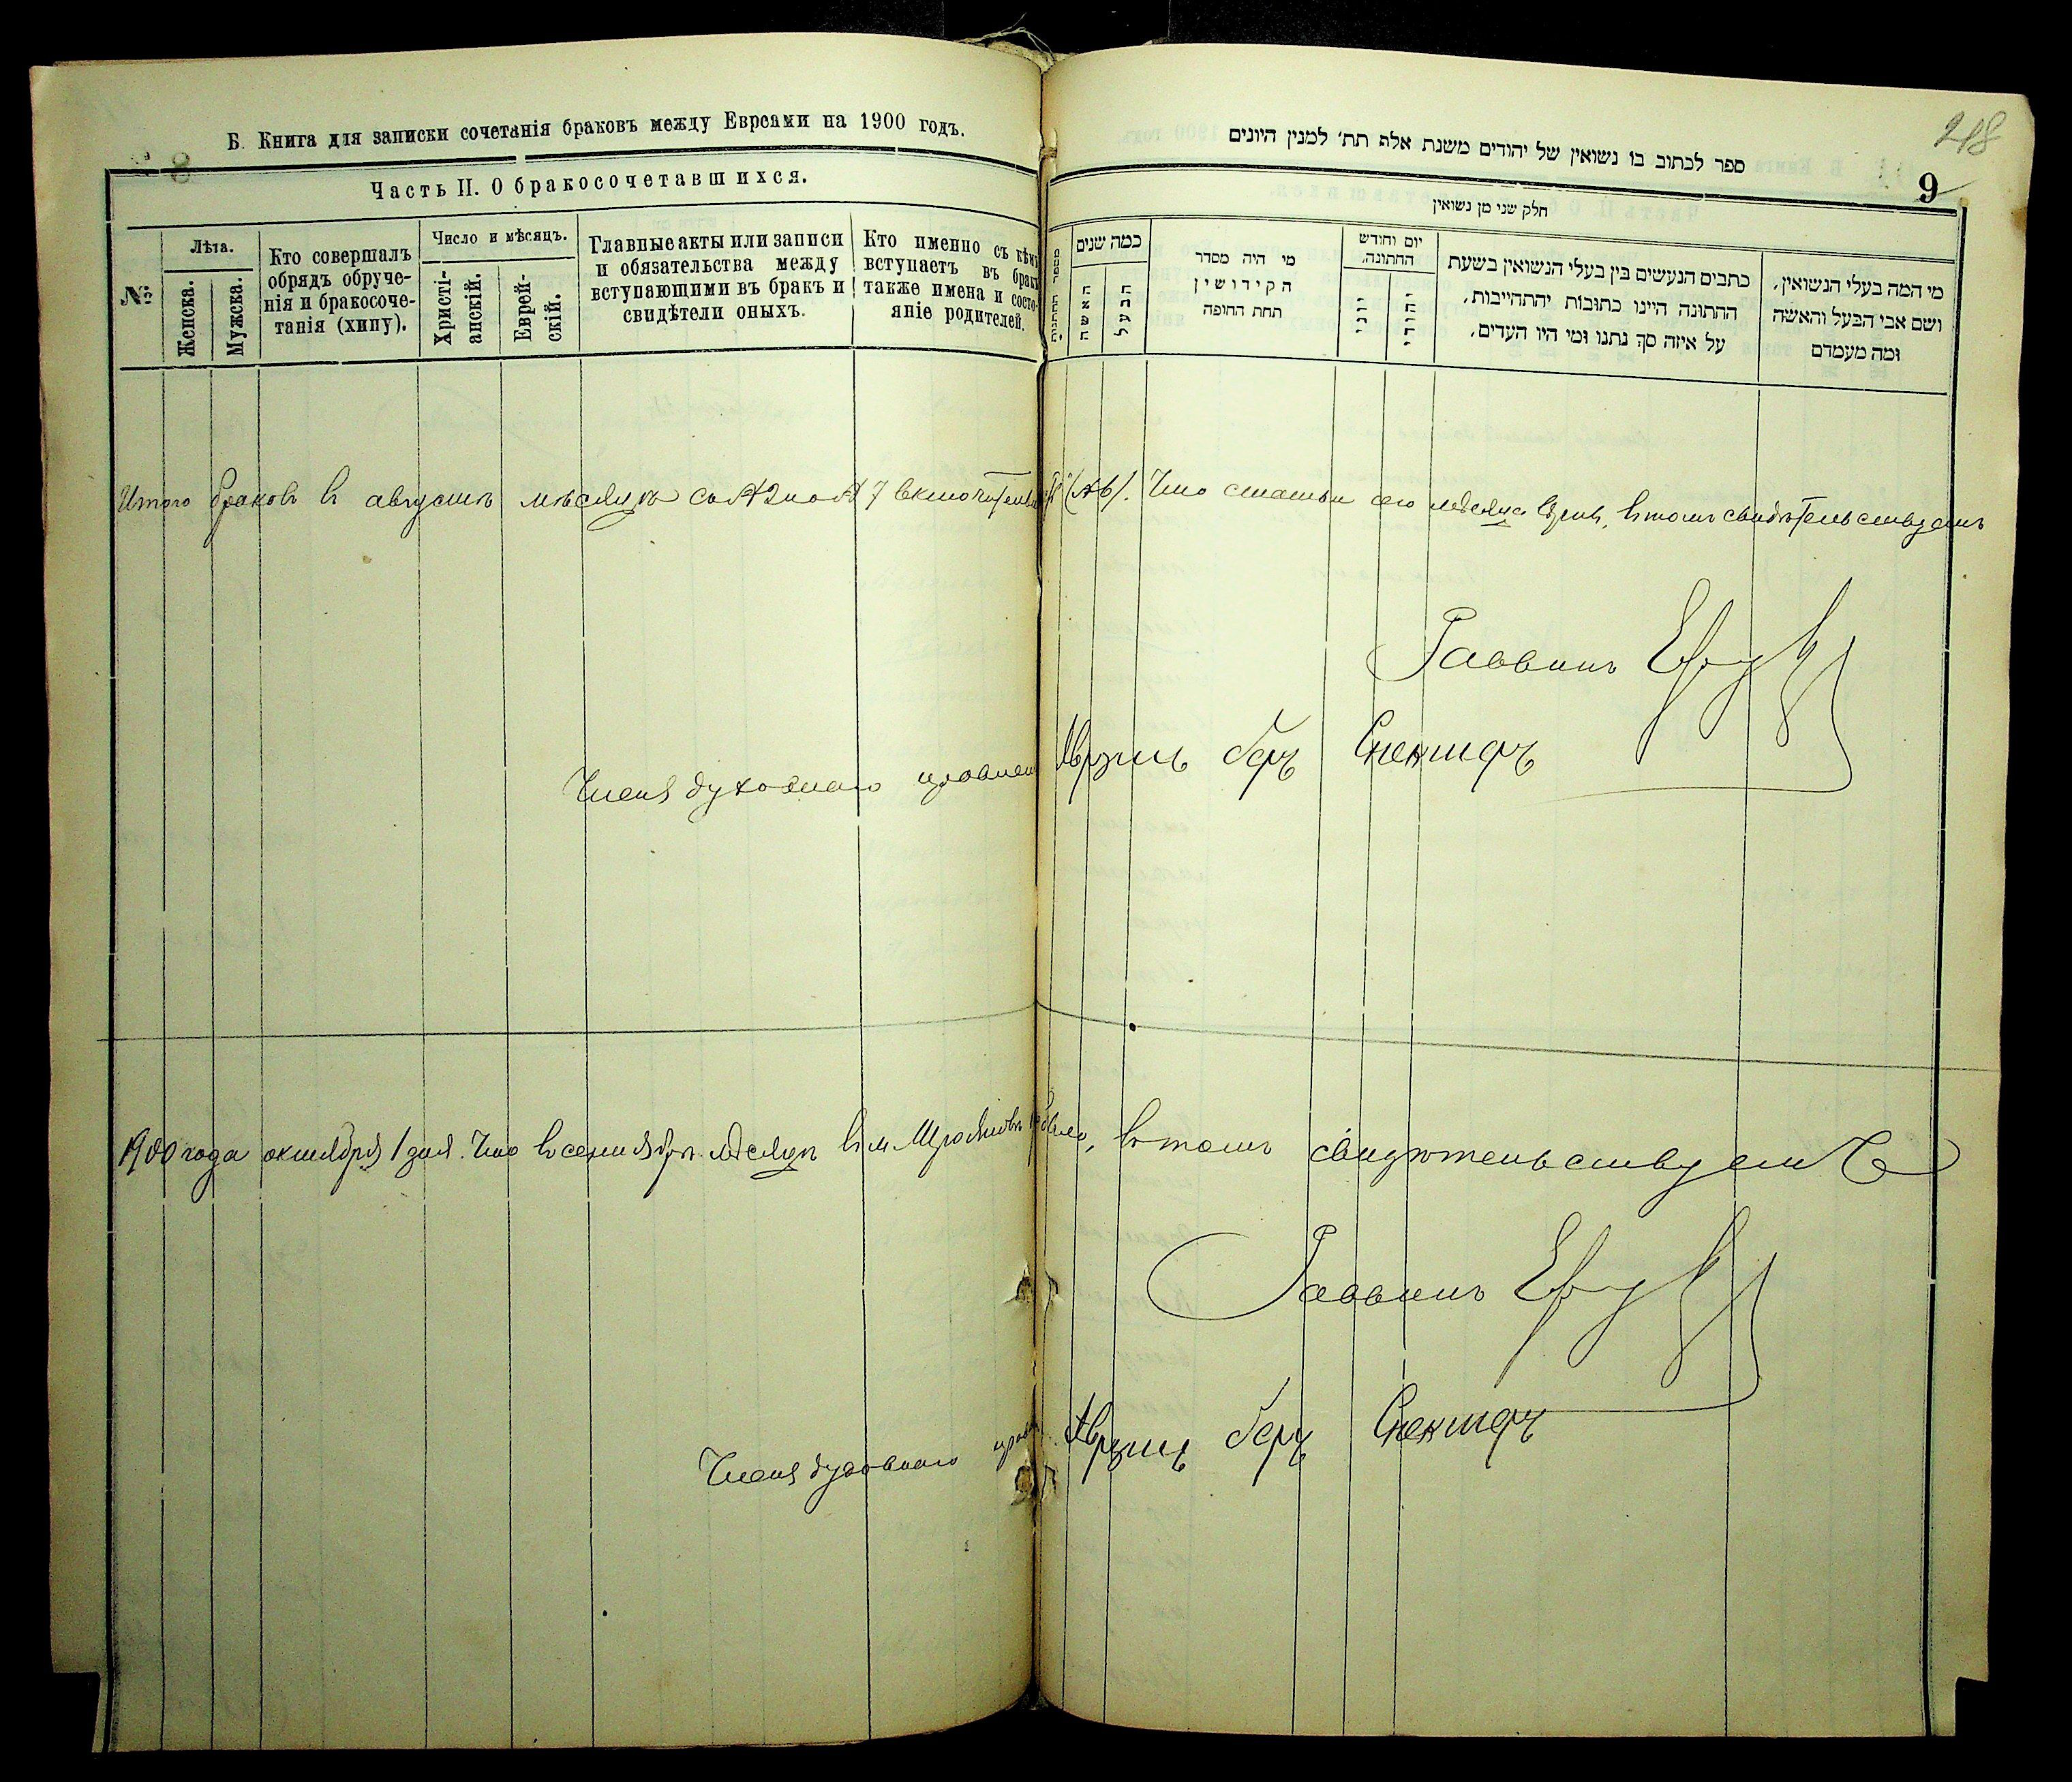 Б. Книга для записки сочетанія браковъ между Евреами на 1900 годъ.
Часть II. О бракосочетавшихся.
№
Лѣта.
Женска.
Мужска.
Кто совершалъ
обрядъ обруче-
нія и бракосоче-
танія (хипу).
Число и мѣсяцъ.
Христі-
анскій.
Еврей-
скій.
Главные акты или записи
и обязательства между
вступающими въ бракъ и
свидѣтели оныхъ.
Кто именно съ кѣмъ
вступаетъ въ бракъ
также имена и состо-
яніе родителей.
248
ספר לכתוב בו נשואין של יהודים משנת אלף תת׳ למנין היונים
9
חלק שני מן נשואין
כמה שנים
האשה
הבעל
מי היה מסדר
הקידושין
תחת החופה
יום וחודש
החתונה.
יוני
יהודי
כתבים הנעשים בין בעלי הנשואין בשעת
החתונה היינו כתובות יהתחייבות,
על איזה סך נתנו ומי היו העדים,
מי המה בעלי הנשואין,
ושם אבי הבעל והאשה
ומה מעמדם
Итого браковъ въ августѣ мѣсяцѣ съ № 2 по № 7 включительно Что статьи сего мѣсяца вѣрны, въ томъ свидѣтельствуемъ
Раввинъ
Членъ духовнаго правлен Аврумъ Беръ
1900 года октября 1 дня. Что въ сентябрѣ мѣсяцѣ въ м. было, въ томъ свидѣтельствуемъ
Раввинъ
Членъ духовнаго правл Аврумъ Беръ